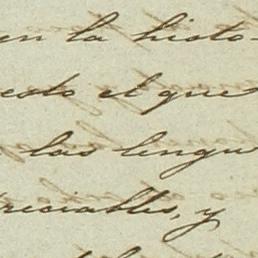 en la histo-
esto el que
las lengu
reciables, y